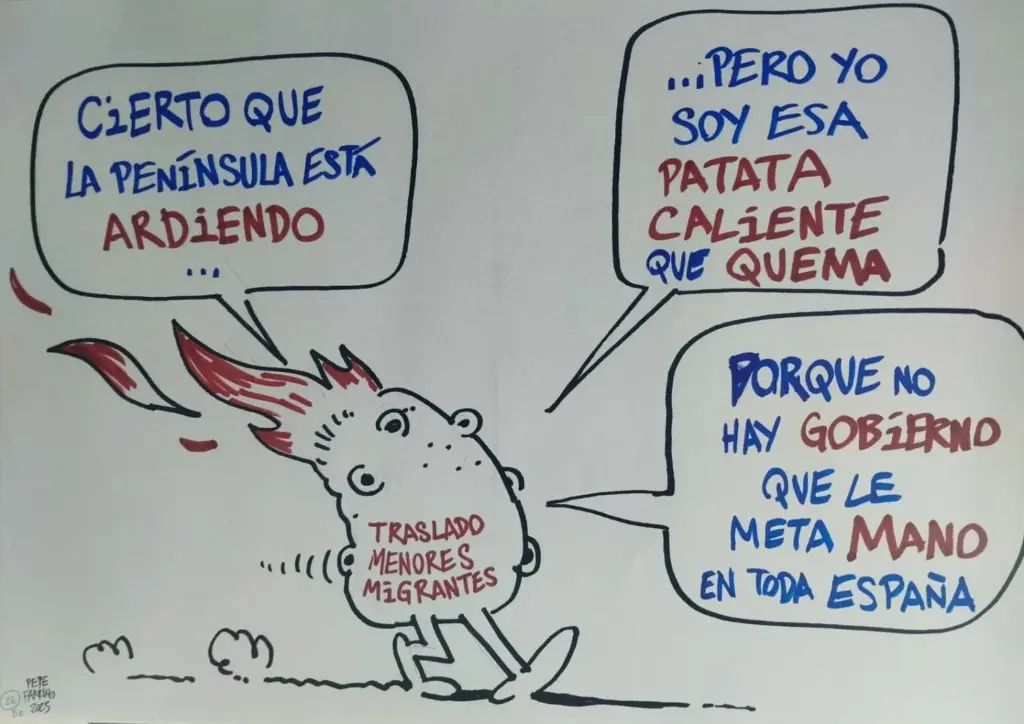 CiERTO QUE
LA PENÍNSULA ESTÁ
ARDiENDO
...
...PERO YO
SOY ESA
PATATA
CALiENTE
QUE QUEMA
PORQUE NO
HAY GOBiERNO
QUE LE
META MANO
EN TODA ESPAÑA
TRASLADO
MENORES
MiGRANTES
PEPE
2025